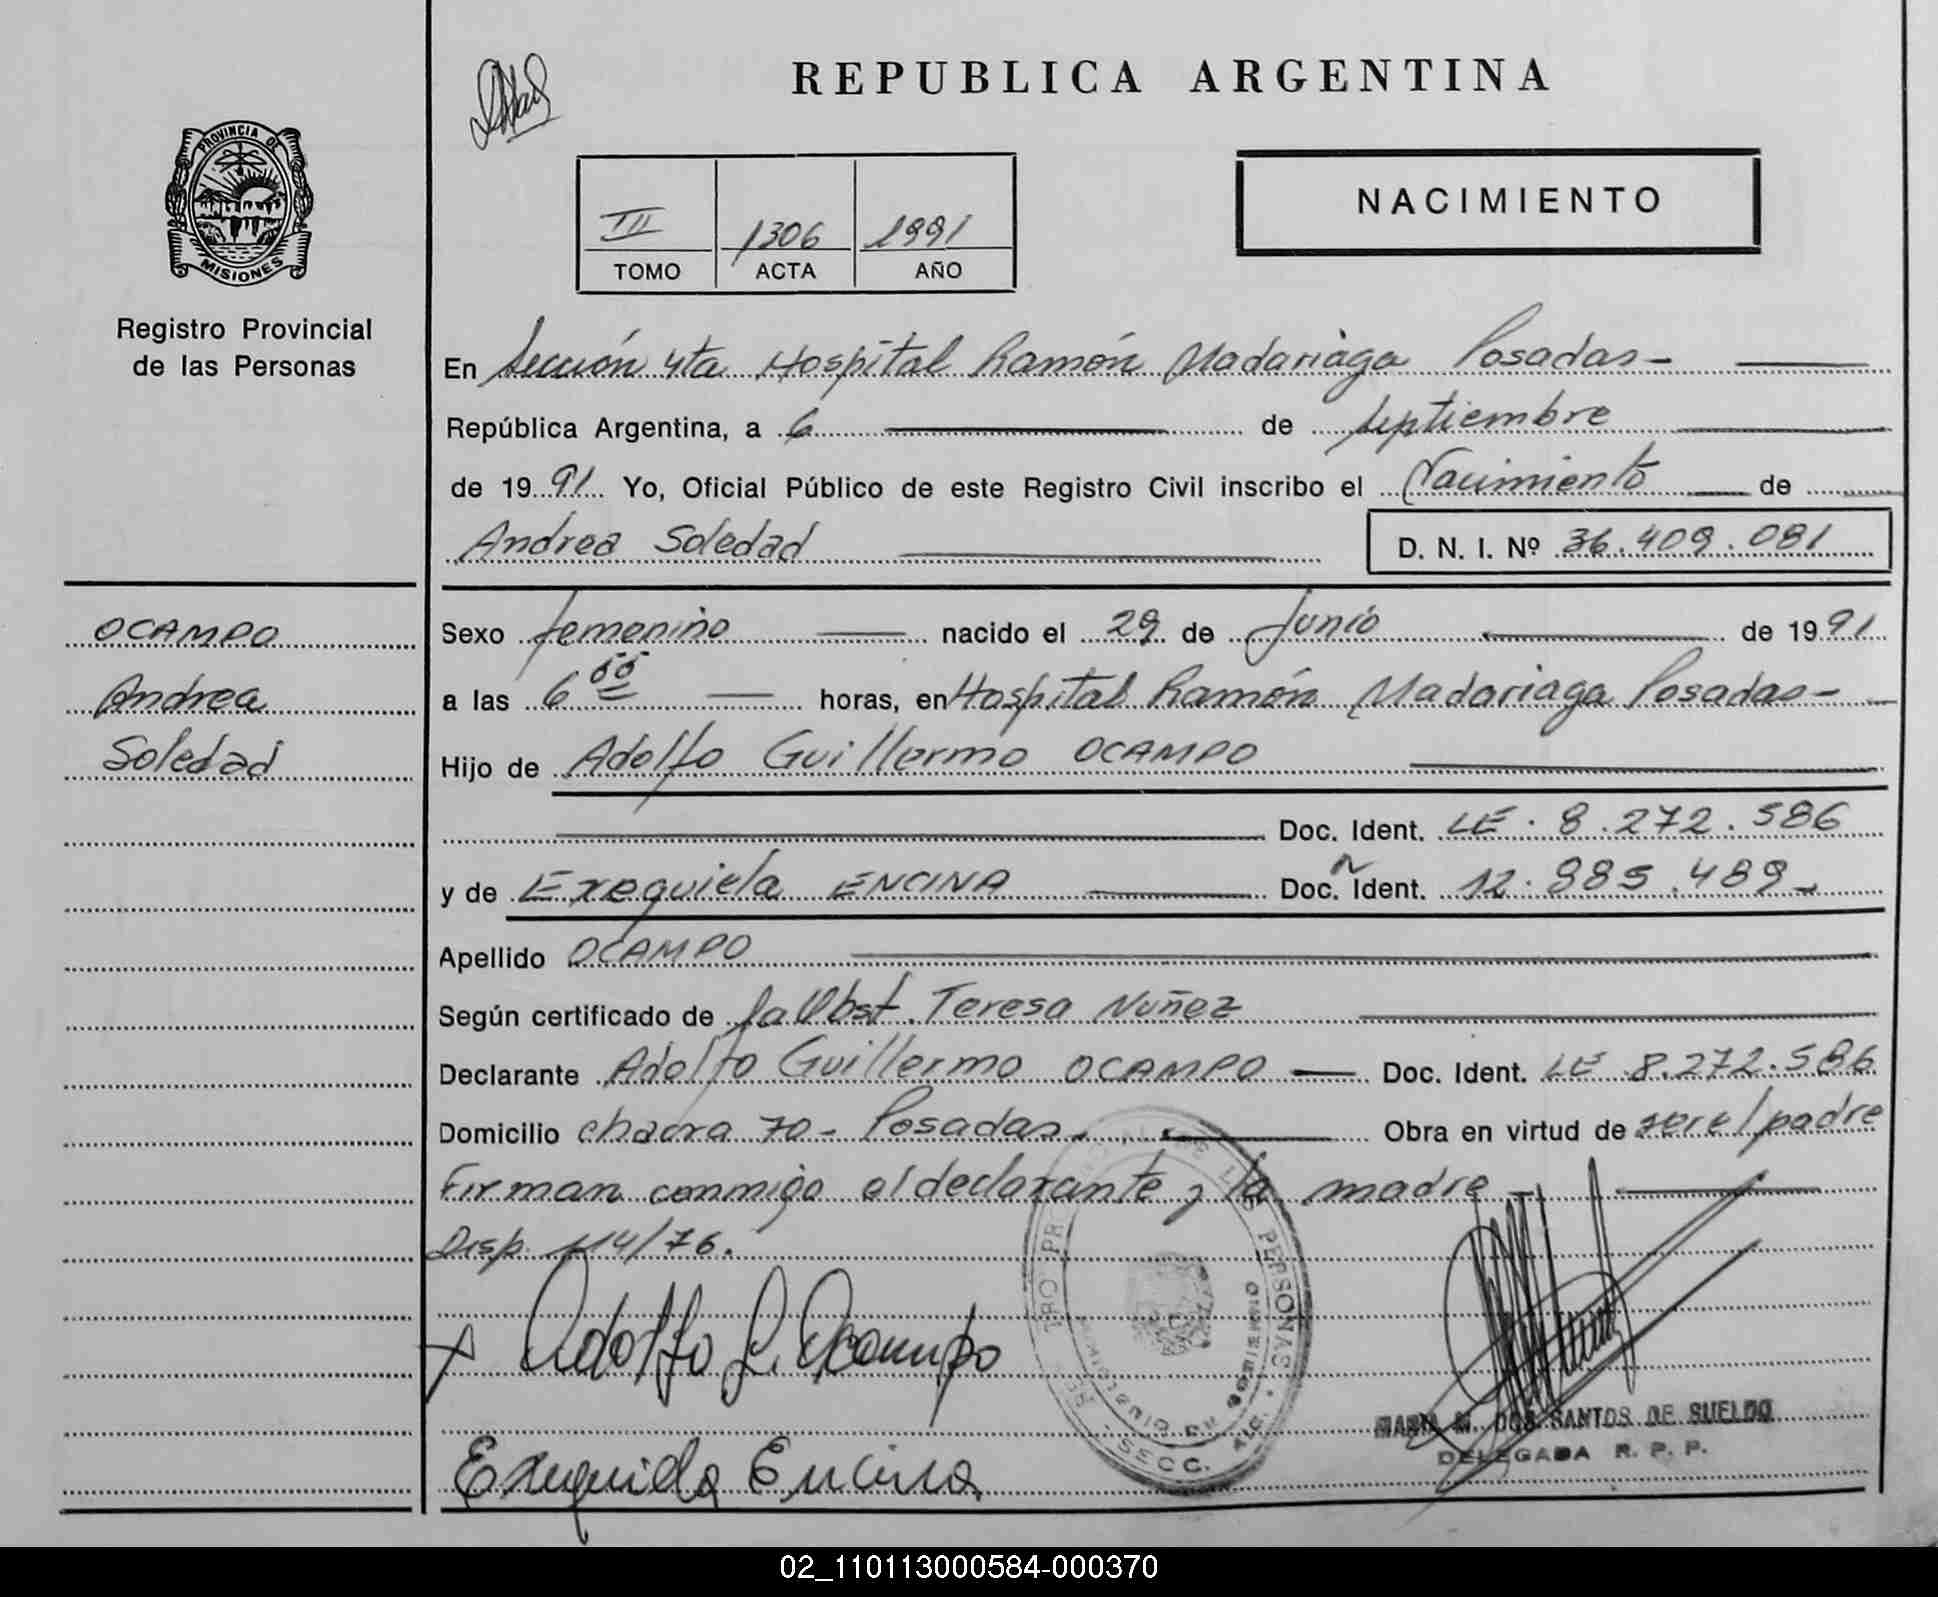 REPUBLICA ARGENTINA
PROVINCIA DE
MISIONES
Registro Provincial
de las Personas
III 1306 1991
TOMO ACTA AÑO
NACIMIENTO
En Sección 4ta Hospital Ramón Madariaga Posadas-
República Argentina, a 6 de septiembre
de 1991 Yo, Oficial Público de este Registro Civil inscribo el Nacimiento de
Andrea Soledad D. N. I. Nº 36.409.081
OCAMPO
Andrea
Soledad
Sexo femenino nacido el 29 de Junio de 1991
a las 6 55 horas, en Hospital Ramón Madariaga Posadas-
Hijo de Adolfo Guillermo OCAMPO
Doc. Ident. LE. 8.272.586
y de Exequiela ENCINA Doc. Ident. 12.885.489-
Apellido OCAMPO
Según certificado de la Obst. Teresa Nuñez
Declarante Adolfo Guillermo OCAMPO Doc. Ident. LE 8.272.586
Domicilio chacra 70- Posadas. Obra en virtud de ser el padre
Firman conmigo el declarante y la madre
Disp. 114/76.
Adolfo G. Ocampo
Exequiela Encina
PERSONAS
SECC.
MARIA M. DOS SANTOS DE SUELDO
DELEGADA R. P. P.
02_110113000584-000370